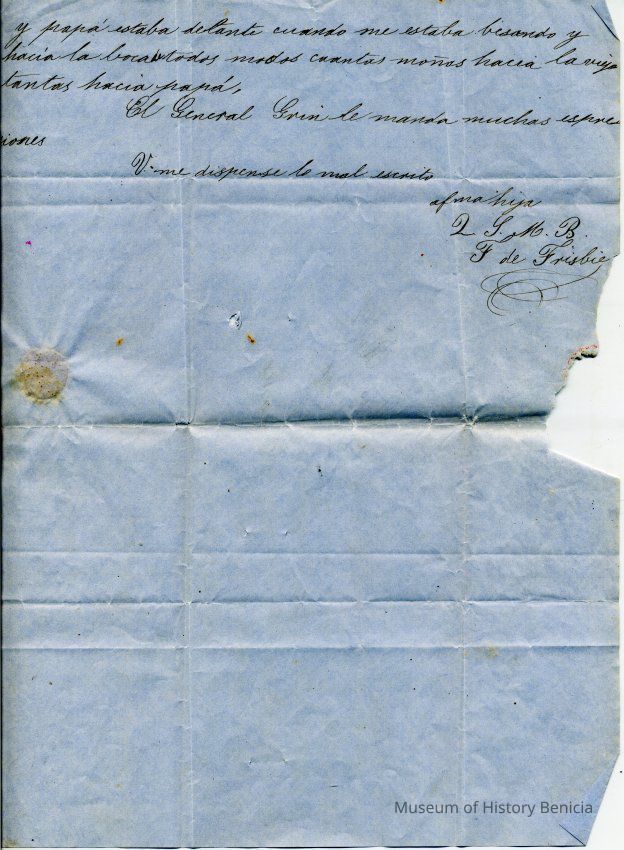 y papá estaba delante cuando me estaba besando y
hacia la boca todos modos cuantas moños hacia la vieja
tantas hacia papá,
El General Grin le manda muchas espre
iones
V. me dispense lo mal escrito
af ma hija
Q S. M. B.
F de Frisbie
Museum of History Benicia